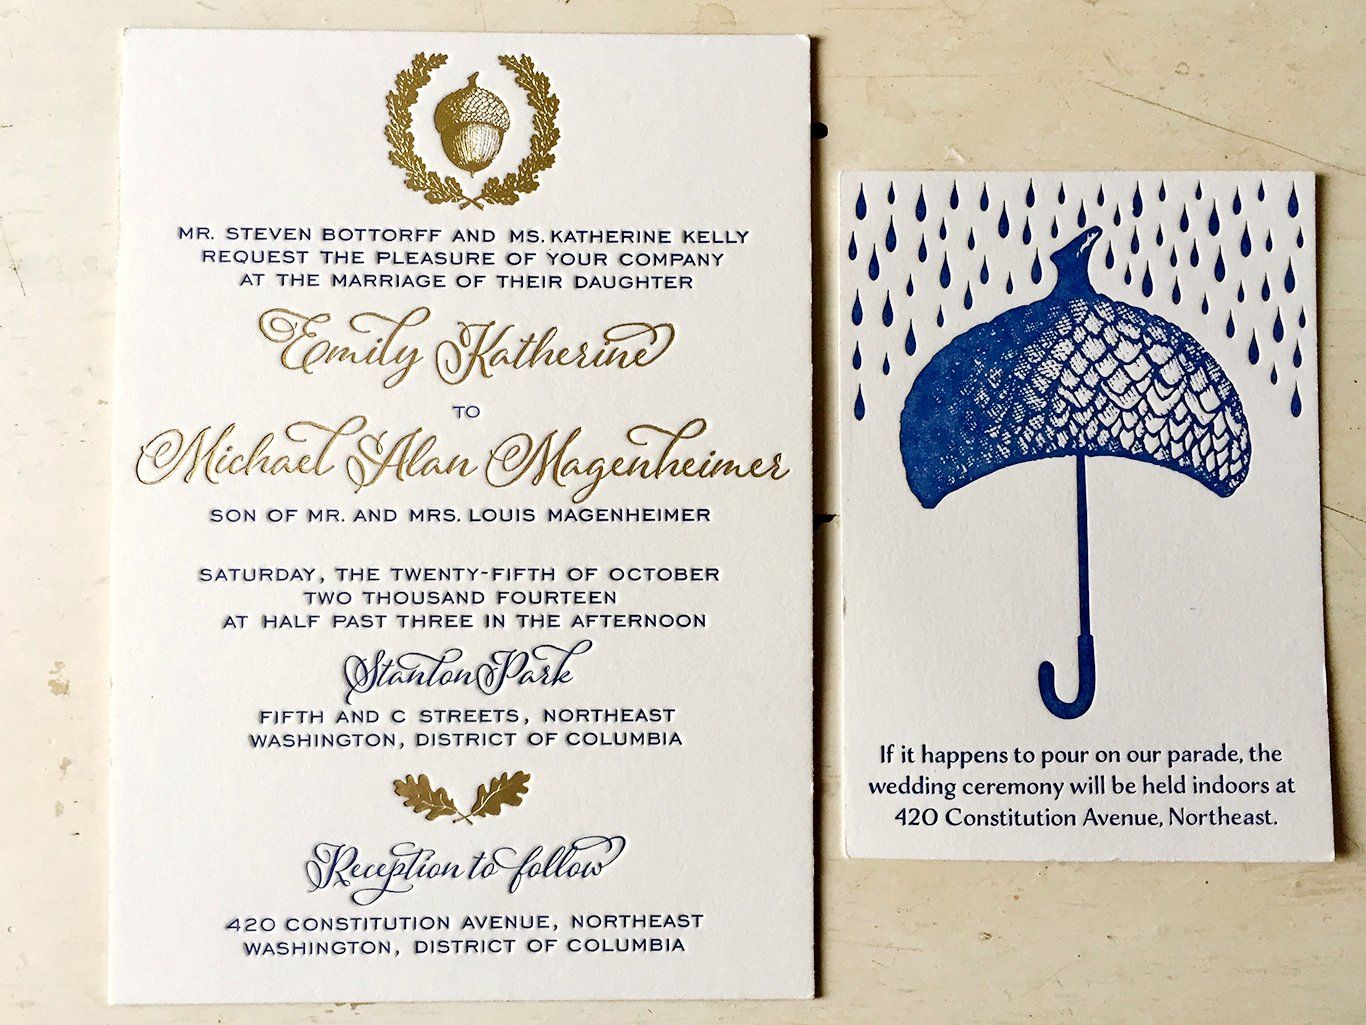 MR. STEVEN BOTTORFF AND MS. KATHERINE KELLY
REQUEST THE PLEASURE OF YOUR COMPANY
AT THE MARRIAGE OF THEIR DAUGHTER
Emily Katherine
TO
Michael Alan Magenheimer
SON OF MR. AND MRS. LOUIS MAGENHEIMER
SATURDAY, THE TWENTY-FIFTH OF OCTOBER
TWO THOUSAND FOURTEEN
AT HALF PAST THREE IN THE AFTERNOON
Stanton Park
FIFTH AND C STREETS, NORTHEAST
WASHINGTON, DISTRICT OF COLUMBIA
Reception to follow
420 CONSTITUTION AVENUE, NORTHEAST
WASHINGTON, DISTRICT OF COLUMBIA
If it happens to pour on our parade, the
wedding ceremony will be held indoors at
420 Constitution Avenue, Northeast.